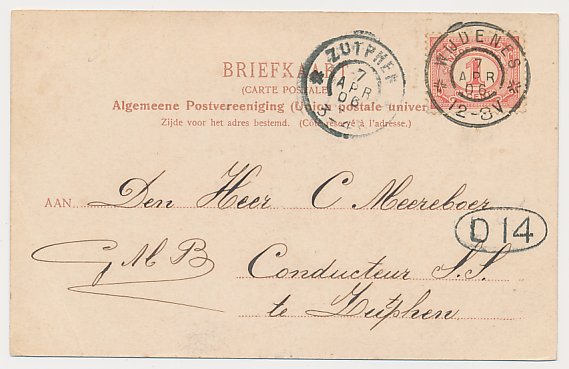 BRIEFKAART
(CARTE POSTALE)
Algemeene Postvereeniging (Union postale univer
Zijde voor het adres bestemd. (Coté reservé à l'adresse.)
ZUTPHEN
7
APR
06
WIJDENES
7
APR
06
12-3V
1
AAN Den Heer C Meereboer
D 14
Conducteur S.S.
te Zutphen